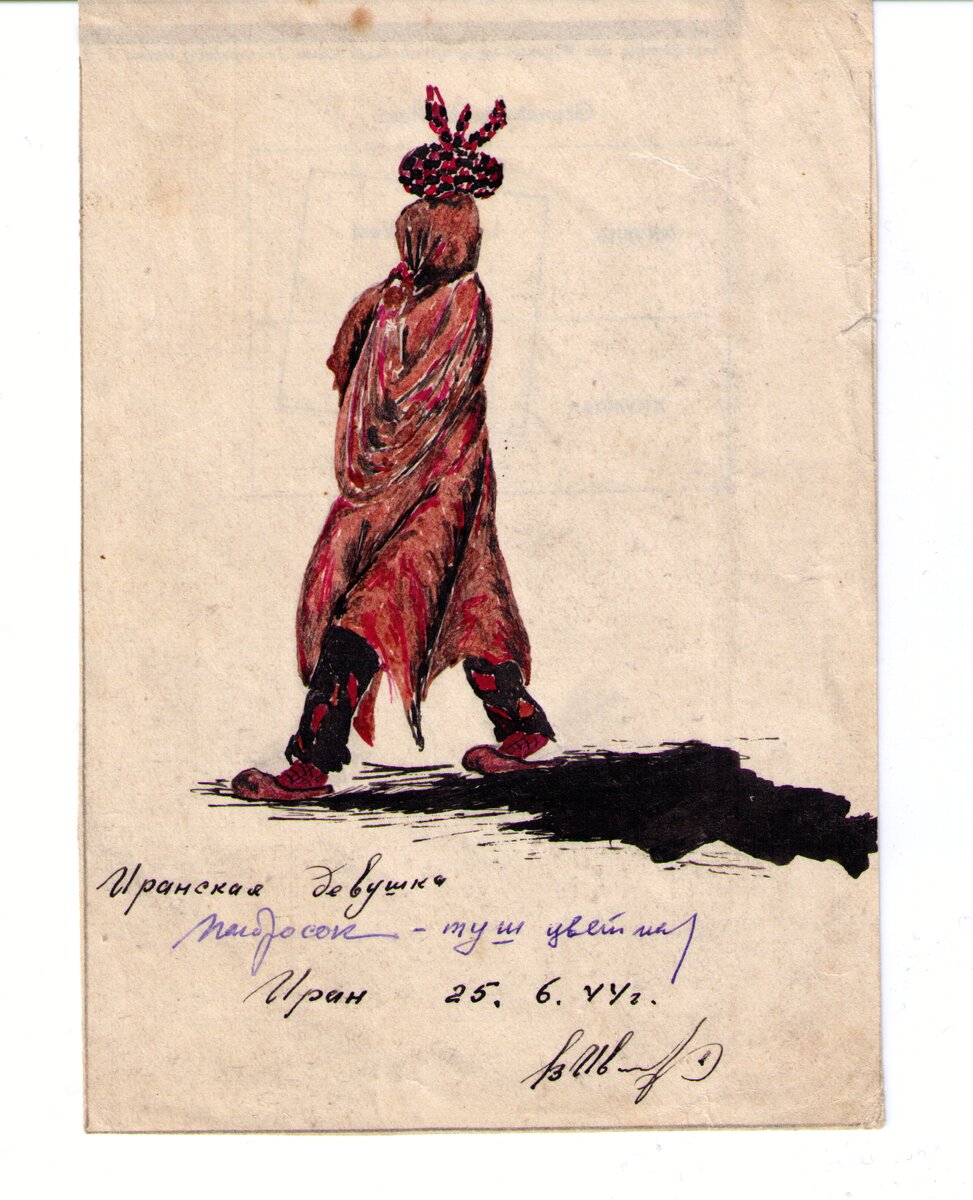 Иранская девушка
Набросок - туш цветная
Иран 25. 6. 44г.